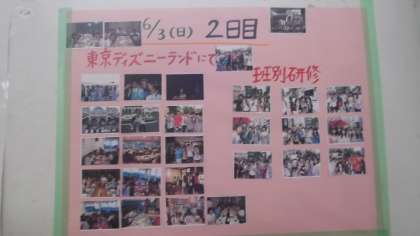 6/3(日) 2日目
東京ディズニーランドにて
班別研修